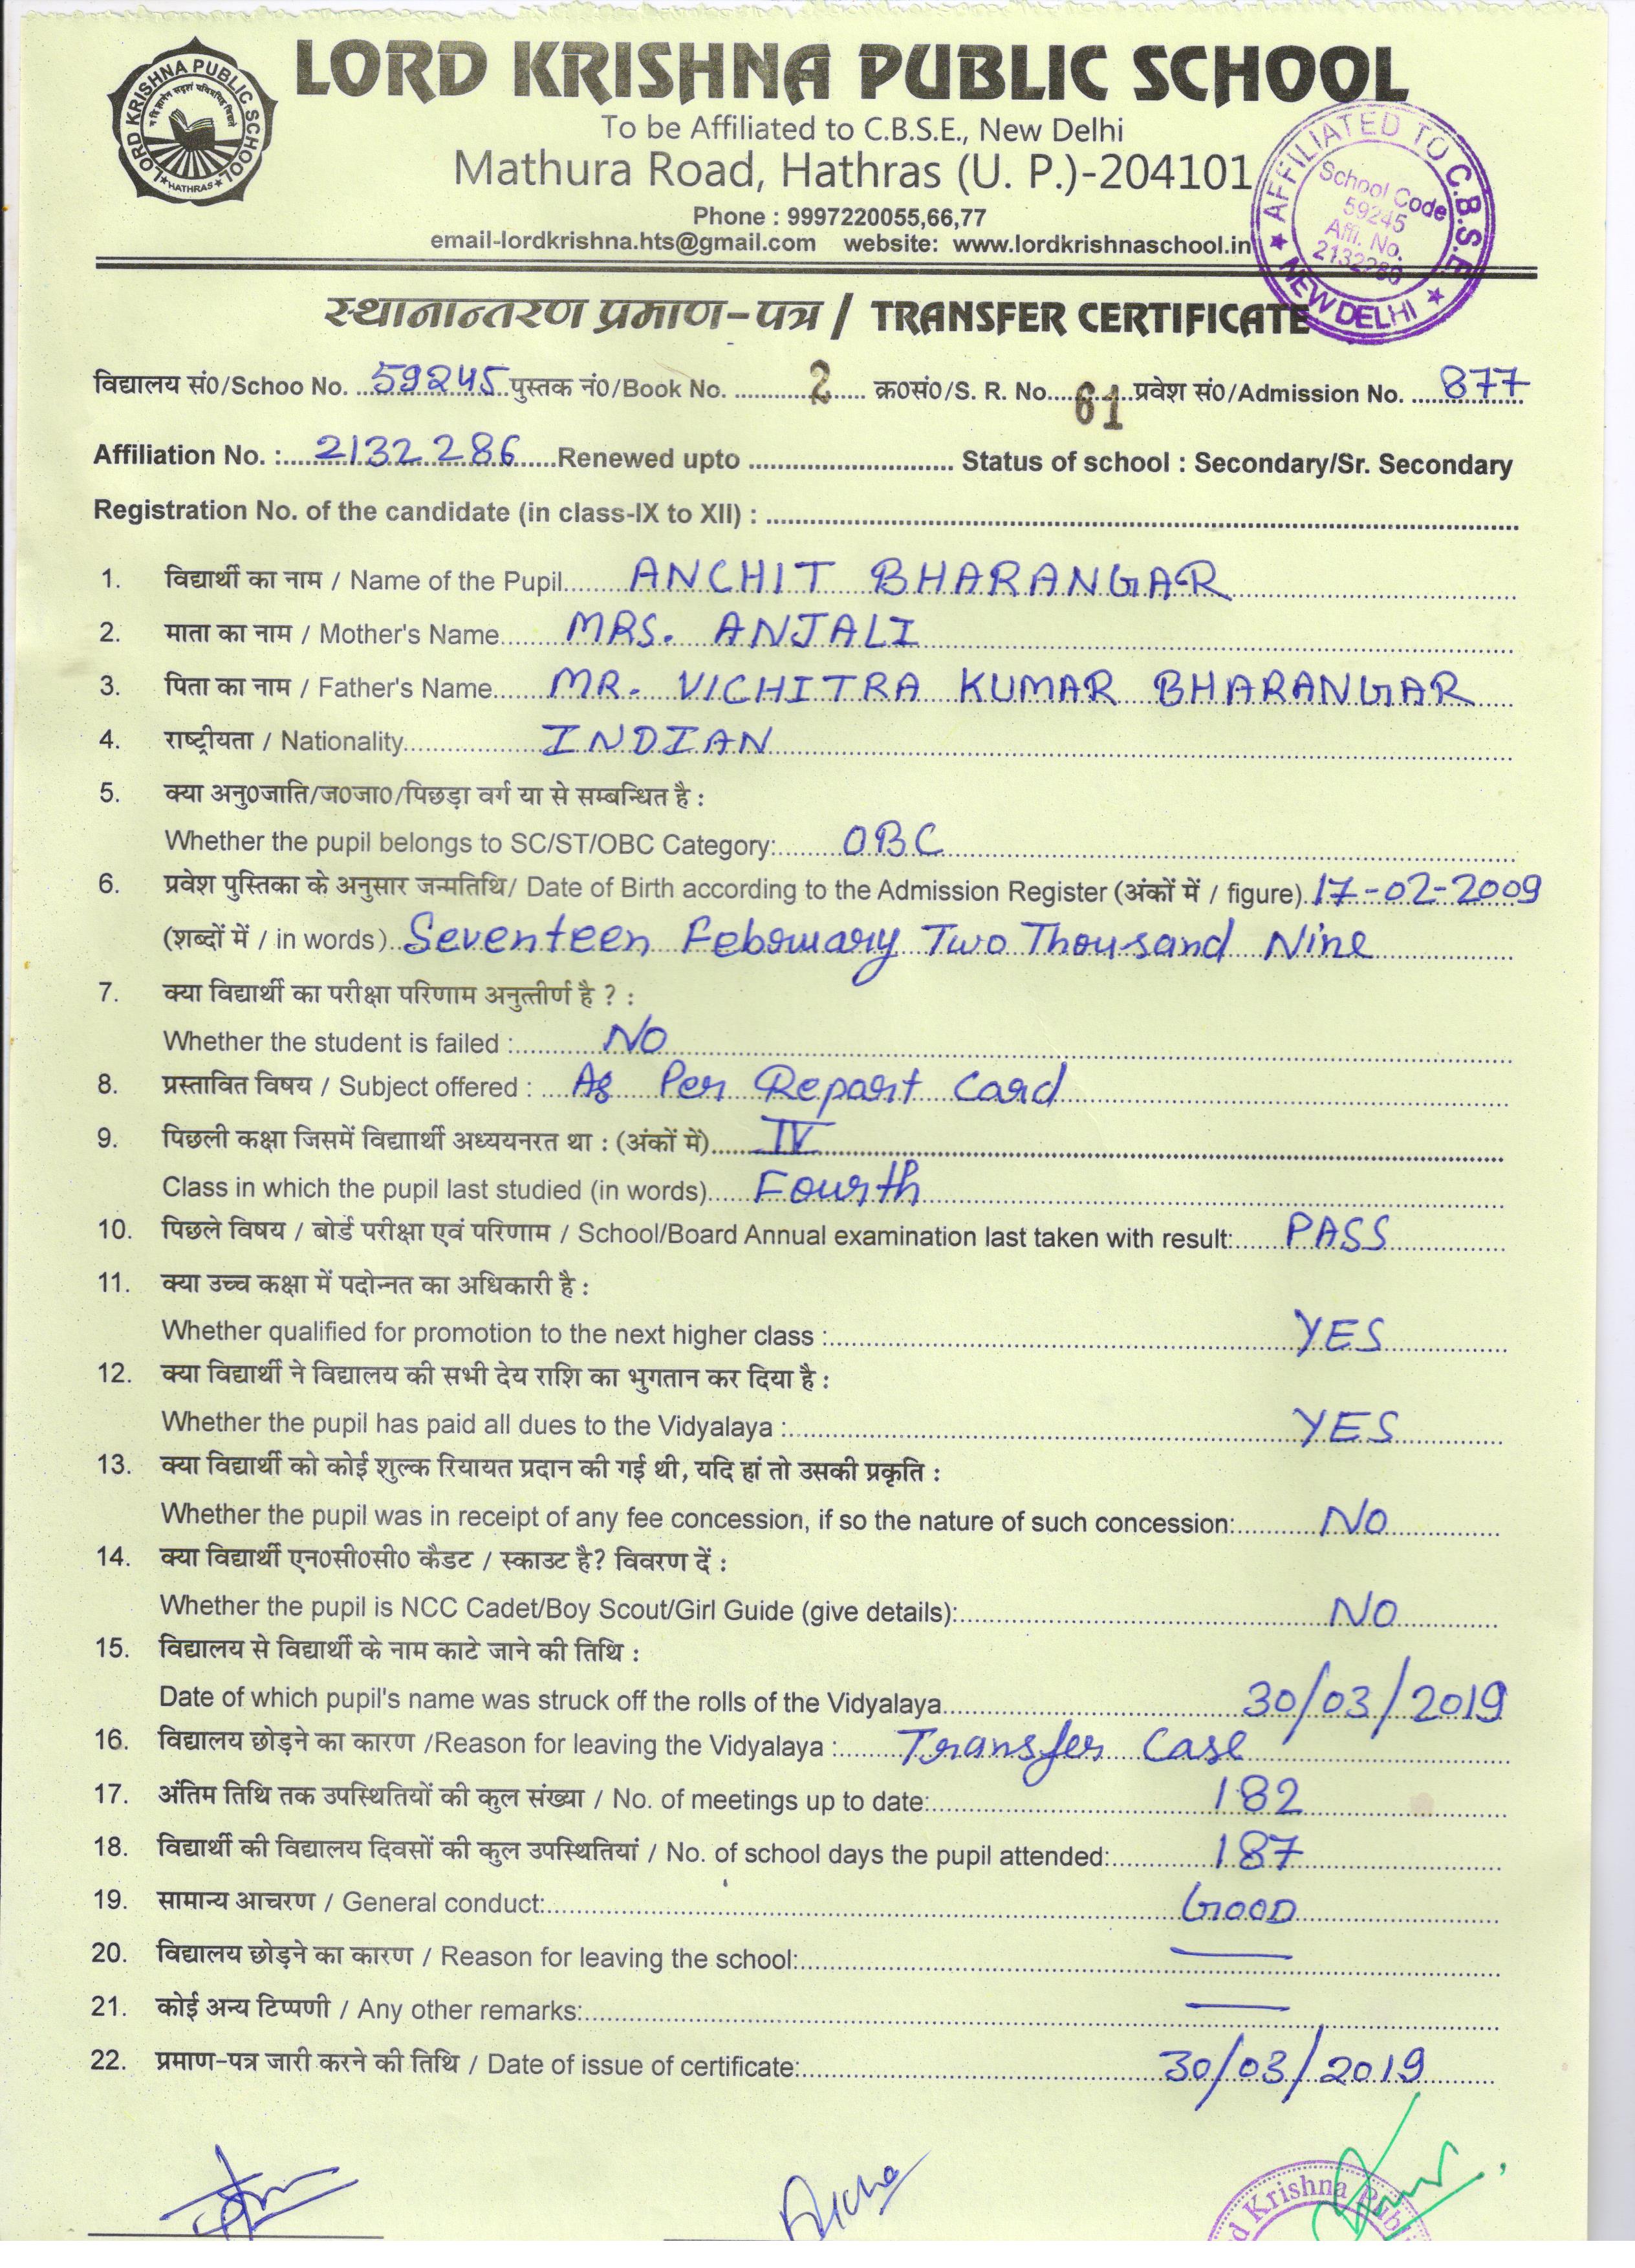 LORD KRISHNA PUBLIC SCHOOL
LORD KRISHNA PUBLIC SCHOOL
★ HATHRAS ★
To be Affiliated to C.B.S.E., New Delhi
Mathura Road, Hathras (U. P.)-204101
Phone : 9997220055,66,77
email-lordkrishna.hts@gmail.com website: www.lordkrishnaschool.in
★ AFFILIATED TO C.B.S.E. ★ NEW DELHI
School Code
59245
Affi. No.
स्थानान्तरण प्रमाण-पत्र / TRANSFER CERTIFICATE
विद्यालय सं0/Schoo No. ...59245..पुस्तक नं0/Book No. ............2..... क्र0सं0/S. R. No....61..प्रवेश सं0/Admission No. ....877
Affiliation No. :....2132286.....Renewed upto ............................ Status of school : Secondary/Sr. Secondary
Registration No. of the candidate (in class-IX to XII) : ............................................................
1. विद्यार्थी का नाम / Name of the Pupil........ANCHIT BHARANGAR..............
2. माता का नाम / Mother's Name.......MRS. ANJALI..............
3. पिता का नाम / Father's Name......MR. VICHITRA KUMAR BHARANGAR....
4. राष्ट्रीयता / Nationality................INDIAN..............
5. क्या अनु0जाति/ज0जा0/पिछड़ा वर्ग या से सम्बन्धित है :
Whether the pupil belongs to SC/ST/OBC Category:.......OBC..............
6. प्रवेश पुस्तिका के अनुसार जन्मतिथि/ Date of Birth according to the Admission Register (अंकों में / figure).17-02-2009
(शब्दों में / in words)..Seventeen February Two Thousand Nine..............
7. क्या विद्यार्थी का परीक्षा परिणाम अनुत्तीर्ण है ? :
Whether the student is failed :..........NO..............
8. प्रस्तावित विषय / Subject offered : ....As Per Report Card..............
9. पिछली कक्षा जिसमें विद्याार्थी अध्ययनरत था : (अंकों में)......IV..............
Class in which the pupil last studied (in words).....Fourth..............
10. पिछले विषय / बोर्ड परीक्षा एवं परिणाम / School/Board Annual examination last taken with result:......PASS..............
11. क्या उच्च कक्षा में पदोन्नत का अधिकारी है :
Whether qualified for promotion to the next higher class :..............YES..............
12. क्या विद्यार्थी ने विद्यालय की सभी देय राशि का भुगतान कर दिया है :
Whether the pupil has paid all dues to the Vidyalaya :..............YES..............
13. क्या विद्यार्थी को कोई शुल्क रियायत प्रदान की गई थी, यदि हां तो उसकी प्रकृति :
Whether the pupil was in receipt of any fee concession, if so the nature of such concession:..........NO..............
14. क्या विद्यार्थी एन0सी0सी0 कैडट / स्काउट है? विवरण दें :
Whether the pupil is NCC Cadet/Boy Scout/Girl Guide (give details):..............NO..............
15. विद्यालय से विद्यार्थी के नाम काटे जाने की तिथि :
Date of which pupil's name was struck off the rolls of the Vidyalaya..............30/03/2019
16. विद्यालय छोड़ने का कारण /Reason for leaving the Vidyalaya :......Transfer Case..............
17. अंतिम तिथि तक उपस्थितियों की कुल संख्या / No. of meetings up to date:..............182..............
18. विद्यार्थी की विद्यालय दिवसों की कुल उपस्थितियां / No. of school days the pupil attended:..............187..............
19. सामान्य आचरण / General conduct:..............GOOD..............
20. विद्यालय छोड़ने का कारण / Reason for leaving the school:..............—..............
21. कोई अन्य टिप्पणी / Any other remarks:..............—..............
22. प्रमाण-पत्र जारी करने की तिथि / Date of issue of certificate:..............30/03/2019..............
Krishna